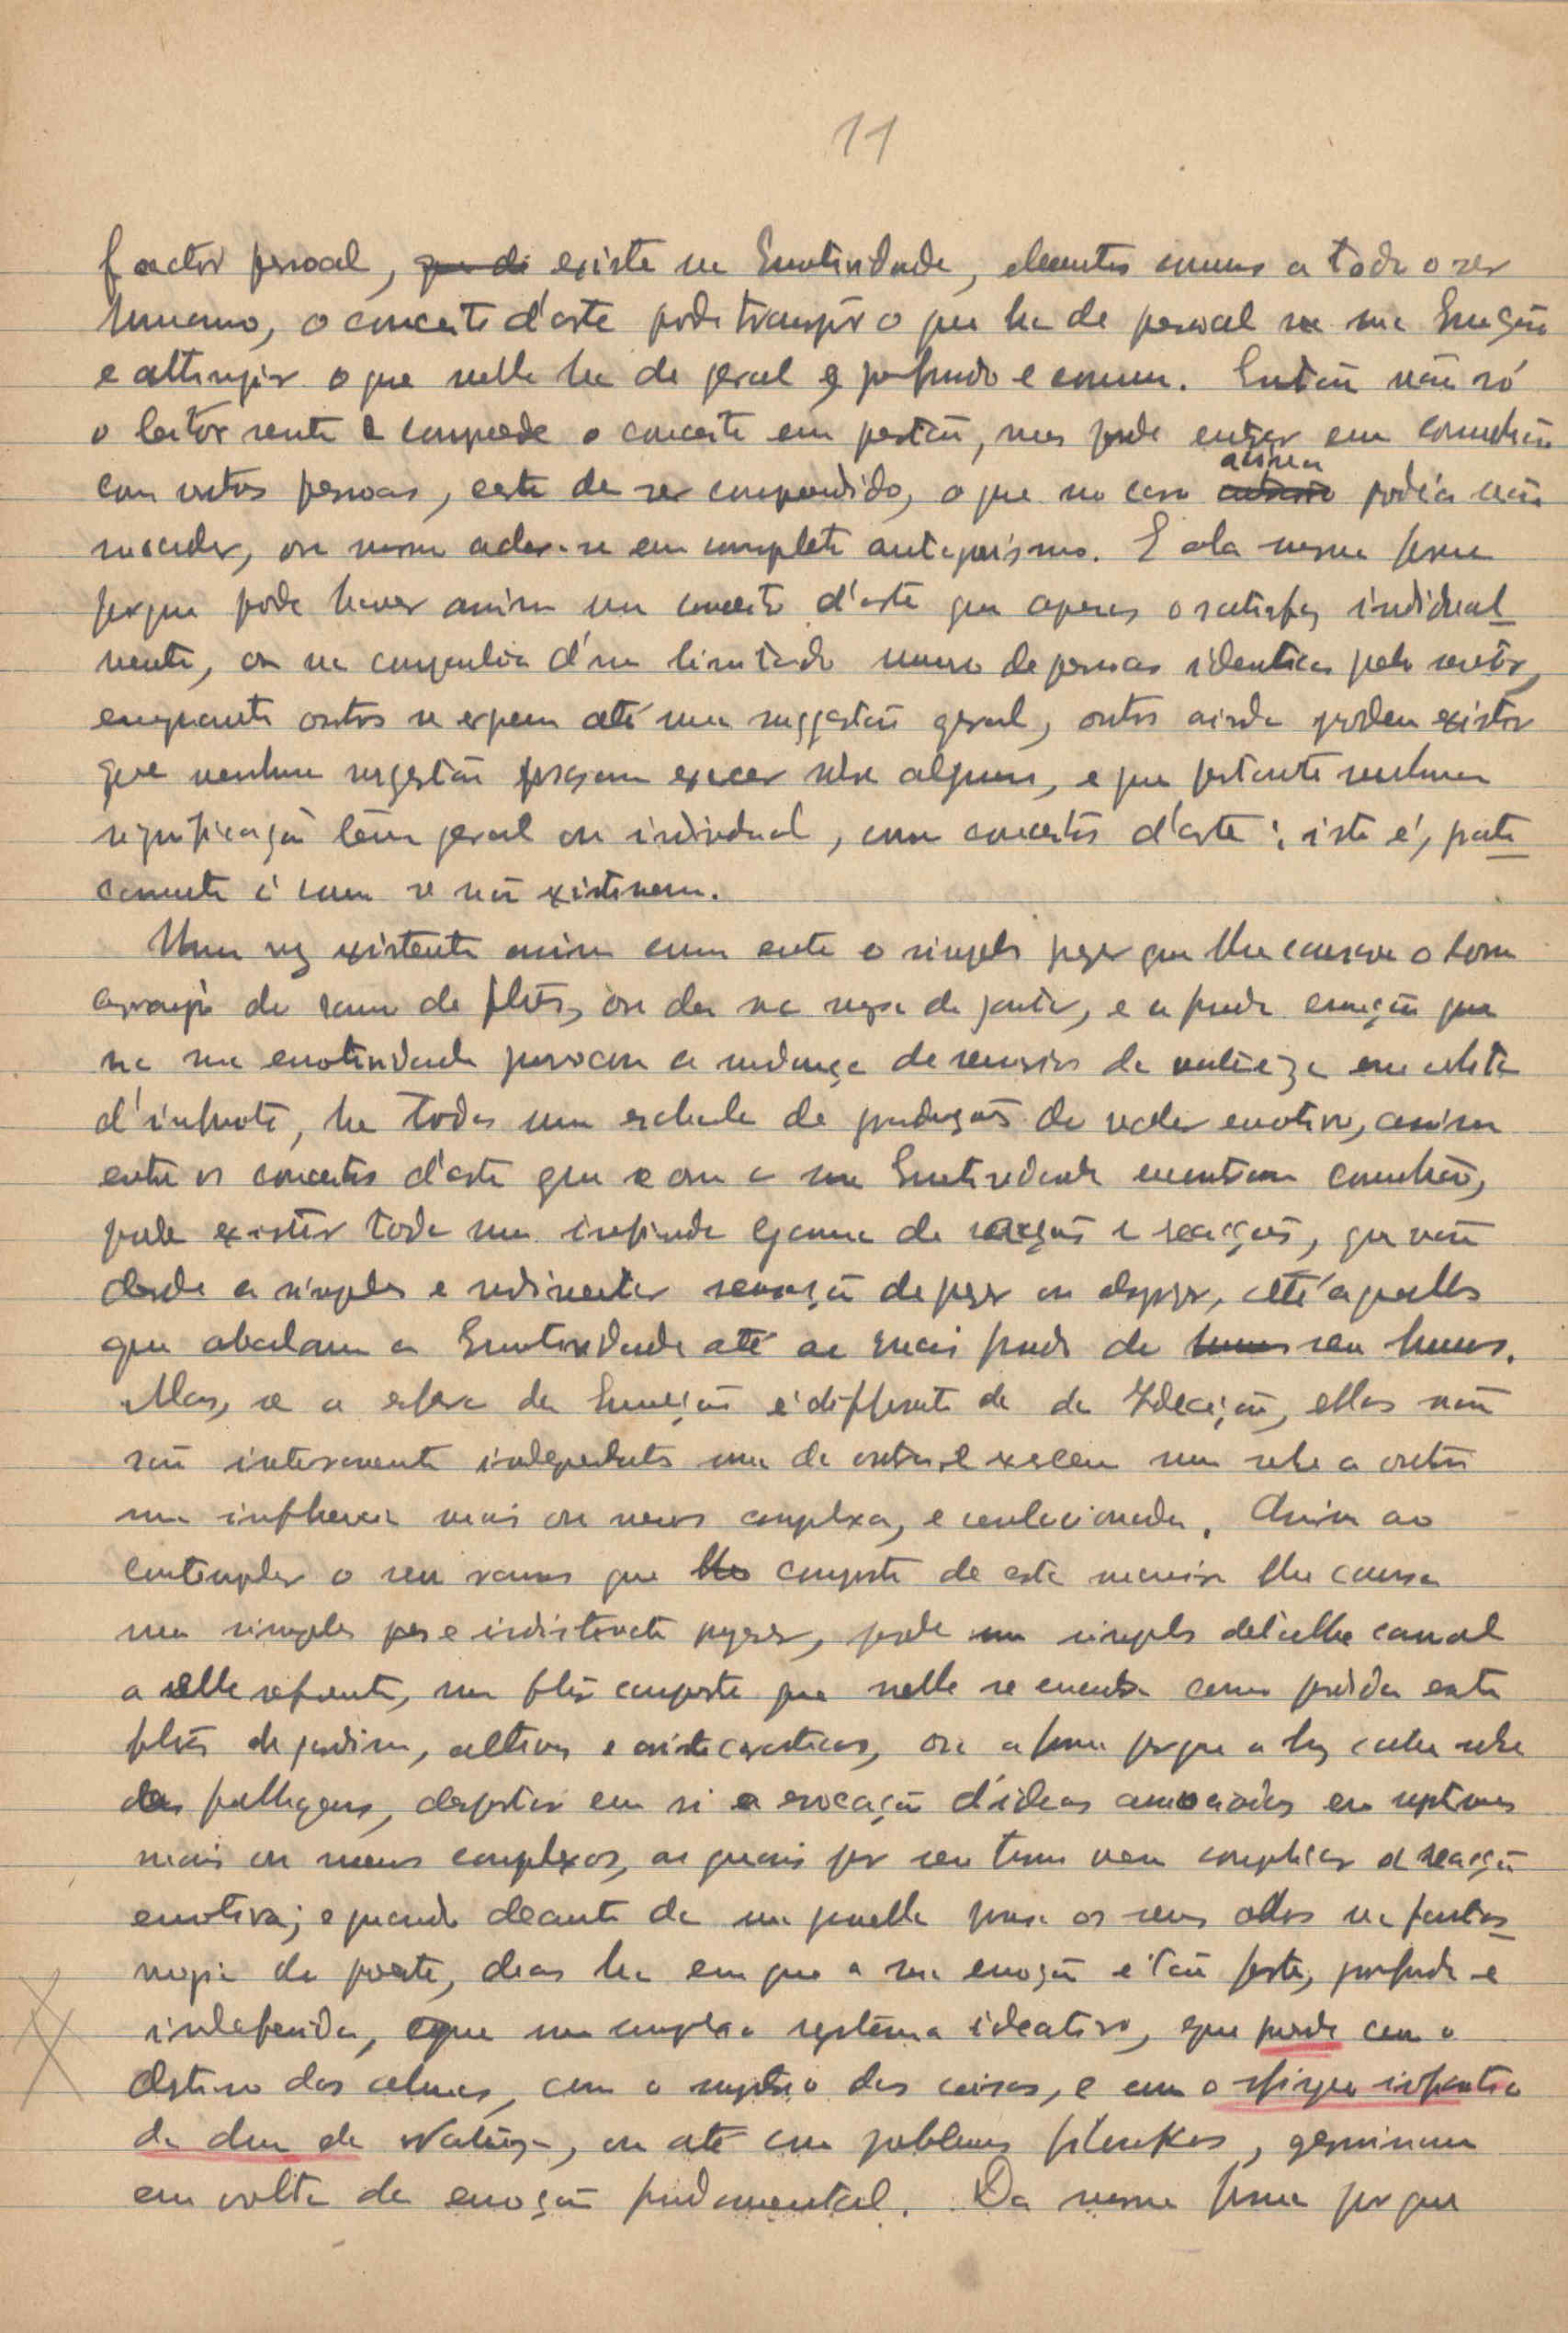 11
factor pessoal, que da existe na Emotividade, elementos comuns a todo o ser
humano, o conceito d'arte pode transpôr o que ha de pessoal na sua Emoção
e attingir o que nella ha de geral e profundo e comum. Então não só
o leitor sente e comprehende o conceito em questão, mas pode entrar em comunhão
com outras pessoas, certo de ser comprendido, o que no caso assim podia não
succeder, ou mesmo achar-se em completo antagonismo. E da mesma forma
porque pode haver assim um conceito d'arte que apenas o satisfaz individual-
mente, ou na companhia d'um limitado numero de pessoas identicas pelo sentir,
emquanto outros se erguem até uma suggestão geral, outros ainda podem existir
que nenhuma sugestão possam exercer sobre alguem, e que portanto nenhuma
significação têm geral ou individual, como conceitos d'arte: isto é, prati-
camente é como se não existissem.
Uma vez existente assim como entre o simples prazer que lhe causou o bom
arranjo do ramo de flôres, ou da sua mesa de jantar, e a funda emoção que
na sua emotividade provocou a mudança de scenarios da natureza em
d'infinito, ha toda uma eschala de graduações do valor emotivo, assim
entre os conceitos d'arte que com a sua Emotividade encontram comunhão,
pode existir toda uma infinda gamma de reacções, que vão
desde a simples e rudimentar sensação de prazer ou desprazer, até áquellas
que abalam a Emotividade até ao mais fundo do seu humus.
Mas, se a esfera da Emoção é differente da da Ideação, ellas não
são inteiramente independentes uma da outra, e exercem uma sobre a outra
uma influencia mais ou menos complexa, e correlacionada. Assim ao
contemplar o seu ramo que composto de esta maneira lhe causa
um simples e indistincto prazer, pode um simples detalhe casual
a elle referente, uma flôr composta que nelle se encontra como perdida entre
flôres de jardim, altivas e aristocraticas, ou a forma porque a luz cahe sobre
as folhagens, despertar em si a evocação d'ideas associadas em systemas
mais ou menos complexos, as quais por seu turno vem complicar a reacção
emotiva; e quando deante de sua janella pousa os seus olhos na fantas-
magia do poente, dias ha em que a sua emoção é tão forte, profunda e
indefenida, que um complexo systema ideativo, que prende com o
destino das almas, com o mysterio das coisas, e com
da dôr da Natureza, ou até com problemas filosoficos, germinam
em volta da emoção fundamental. Da mesma forma porque